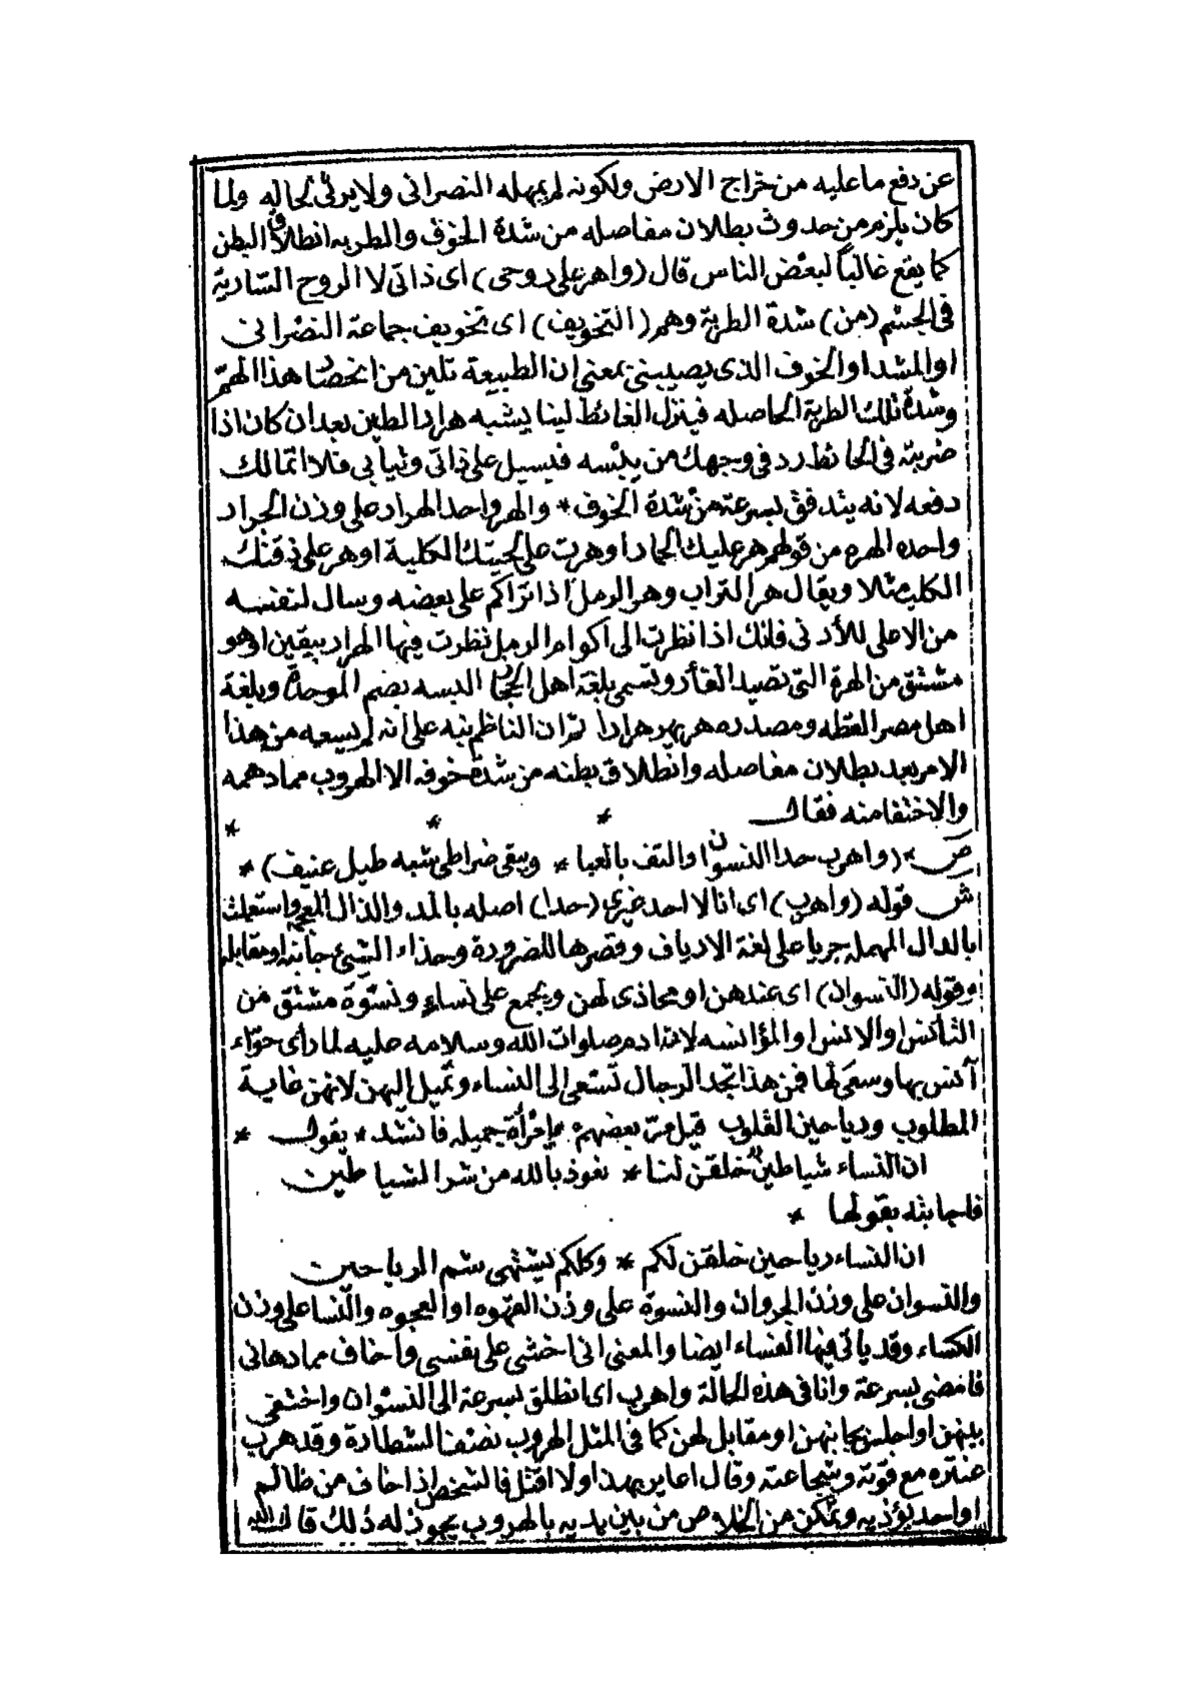 عن دفع ما عليه من خراج الارض ولكونه لم يمهله النصرانى ولا يرثى لحاله ولما
كان يلزم من حدوث بطلان مفاصله من شدة الخوف والطربه انطلاق البطن
كما يقع غالباً لبعض الناس قال (واهر على روحى) اى ذاتى لا الروح السّارية
فى الجسم (من) شدة الطربة وهم (التخويف) اى تخويف جماعة النصرانى
او المشد او الخوف الذى يصيبنى بمعنى ان الطبيعة تلين من انحصار هذا الهمّ
وشدة تلك الطربة الحاصله فينزل الغائط لينا يشبه هرار الطين بعد ان كان اذا
ضربته فى الحائط رد فى وجهك من يبسه فيسيل على ذاتى وثيابى فلا اتمالك
دفعه لانه يتدفق بسرعة من شدة الخوف * والهر واحد الهرار على وزن الجرار
واحده الهره من قولهم هر عليك الحمار او هرت على لحيتك الكلبة او هر على ذقنك
الكلب مثلا ويقال هر التراب وهر الرمل اذا تراكم على بعضه وسال لنفسه
من الاعلى للأدنى فانك اذا نظرت الى اكوام الرمل نظرت فيها الهرار بيقين او هو
مشتق من الهرة التى تصيد الفأر وتسمى بلغة اهل الحجاز البسه بضم الموحدة وبلغة
اهل مصر القطه ومصدره هر يهر هرارا ثم ان الناظم نبه على انه لم يسعه من هذا
الامر بعد بطلان مفاصله وانطلاق بطنه من شدة خوفه الا الهروب مما دهمه
والاختفا منه فقال * * *
ص * (واهرب حدا النسوان والتف بالعبا * ويبقى ضراطى شبه طبل عنيف) *
ش قوله (واهرب) اى انا لا احد غيرى (حدا) اصله بالمد والذال المعجمه واستعملت
بالدال المهمله جريا على لغة الارياف وقصرها للضرورة وحذاء الشيئ جانبه او مقابله
وقوله (النسوان) اى عندهن او محاذى لهن ويجمع على نساءٍ ونسوة مشتق من
التأنس او الانس او المؤانسه لان ادم صلوات الله وسلامه عليه لما راى حوّاء
آنس بها وسعى لها فمن هذا تجد الرجال تسعى الى النساء وتميل اليهن لانهن غاية
المطلوب ورياحين القلوب قيل مرّ بعضهم بإمرأة جميله فانشد * يقول *
ان النساء شياطين خلقن لنا * نعوذ بالله من شر الشياطين
فاجابته بقولها *
ان النساء رياحين خلقن لكم * وكلكم يشتهى شم الرياحين
والنسوان على وزن الجروان والنسوة على وزن القهوه او العجوه والنسا على وزن
الكساء وقد ياتى فيها الفساء ايضا والمعنى انى اخشى على نفسى واخاف مما دهانى
فامضى بسرعة وانا فى هذه الحالة واهرب اى انطلق بسرعة الى النسوان واختفى
بينهن او اجلس بجانبهن او مقابل لهن كما فى المثل الهروب نصف الشطارة وقد هرب
عنتره مع قوّته وشجاعته وقال اعاير بهذا ولا اقتل فالشخص اذا خاف من ظالم
او احد يؤذيه وتمكن من الخلاص من بين يديه بالهروب يجوز له ذلك قال الله